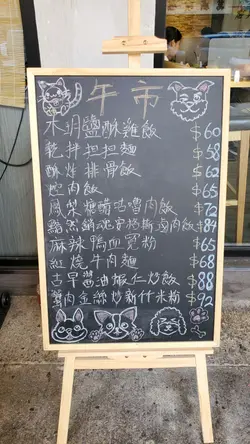 午市
木玥鹽酥雞飯 $60
乾拌担担麵 $58
酥炸排骨飯 $62
焢肉飯 $65
鳳梨糖醋咕嚕肉飯 $72
滷肉飯 $84
麻辣鴨血冬粉 $65
紅燒牛肉麵 $68
古早醬油蝦仁炒飯 $88
醬肉金絲炒新竹米粉 $92